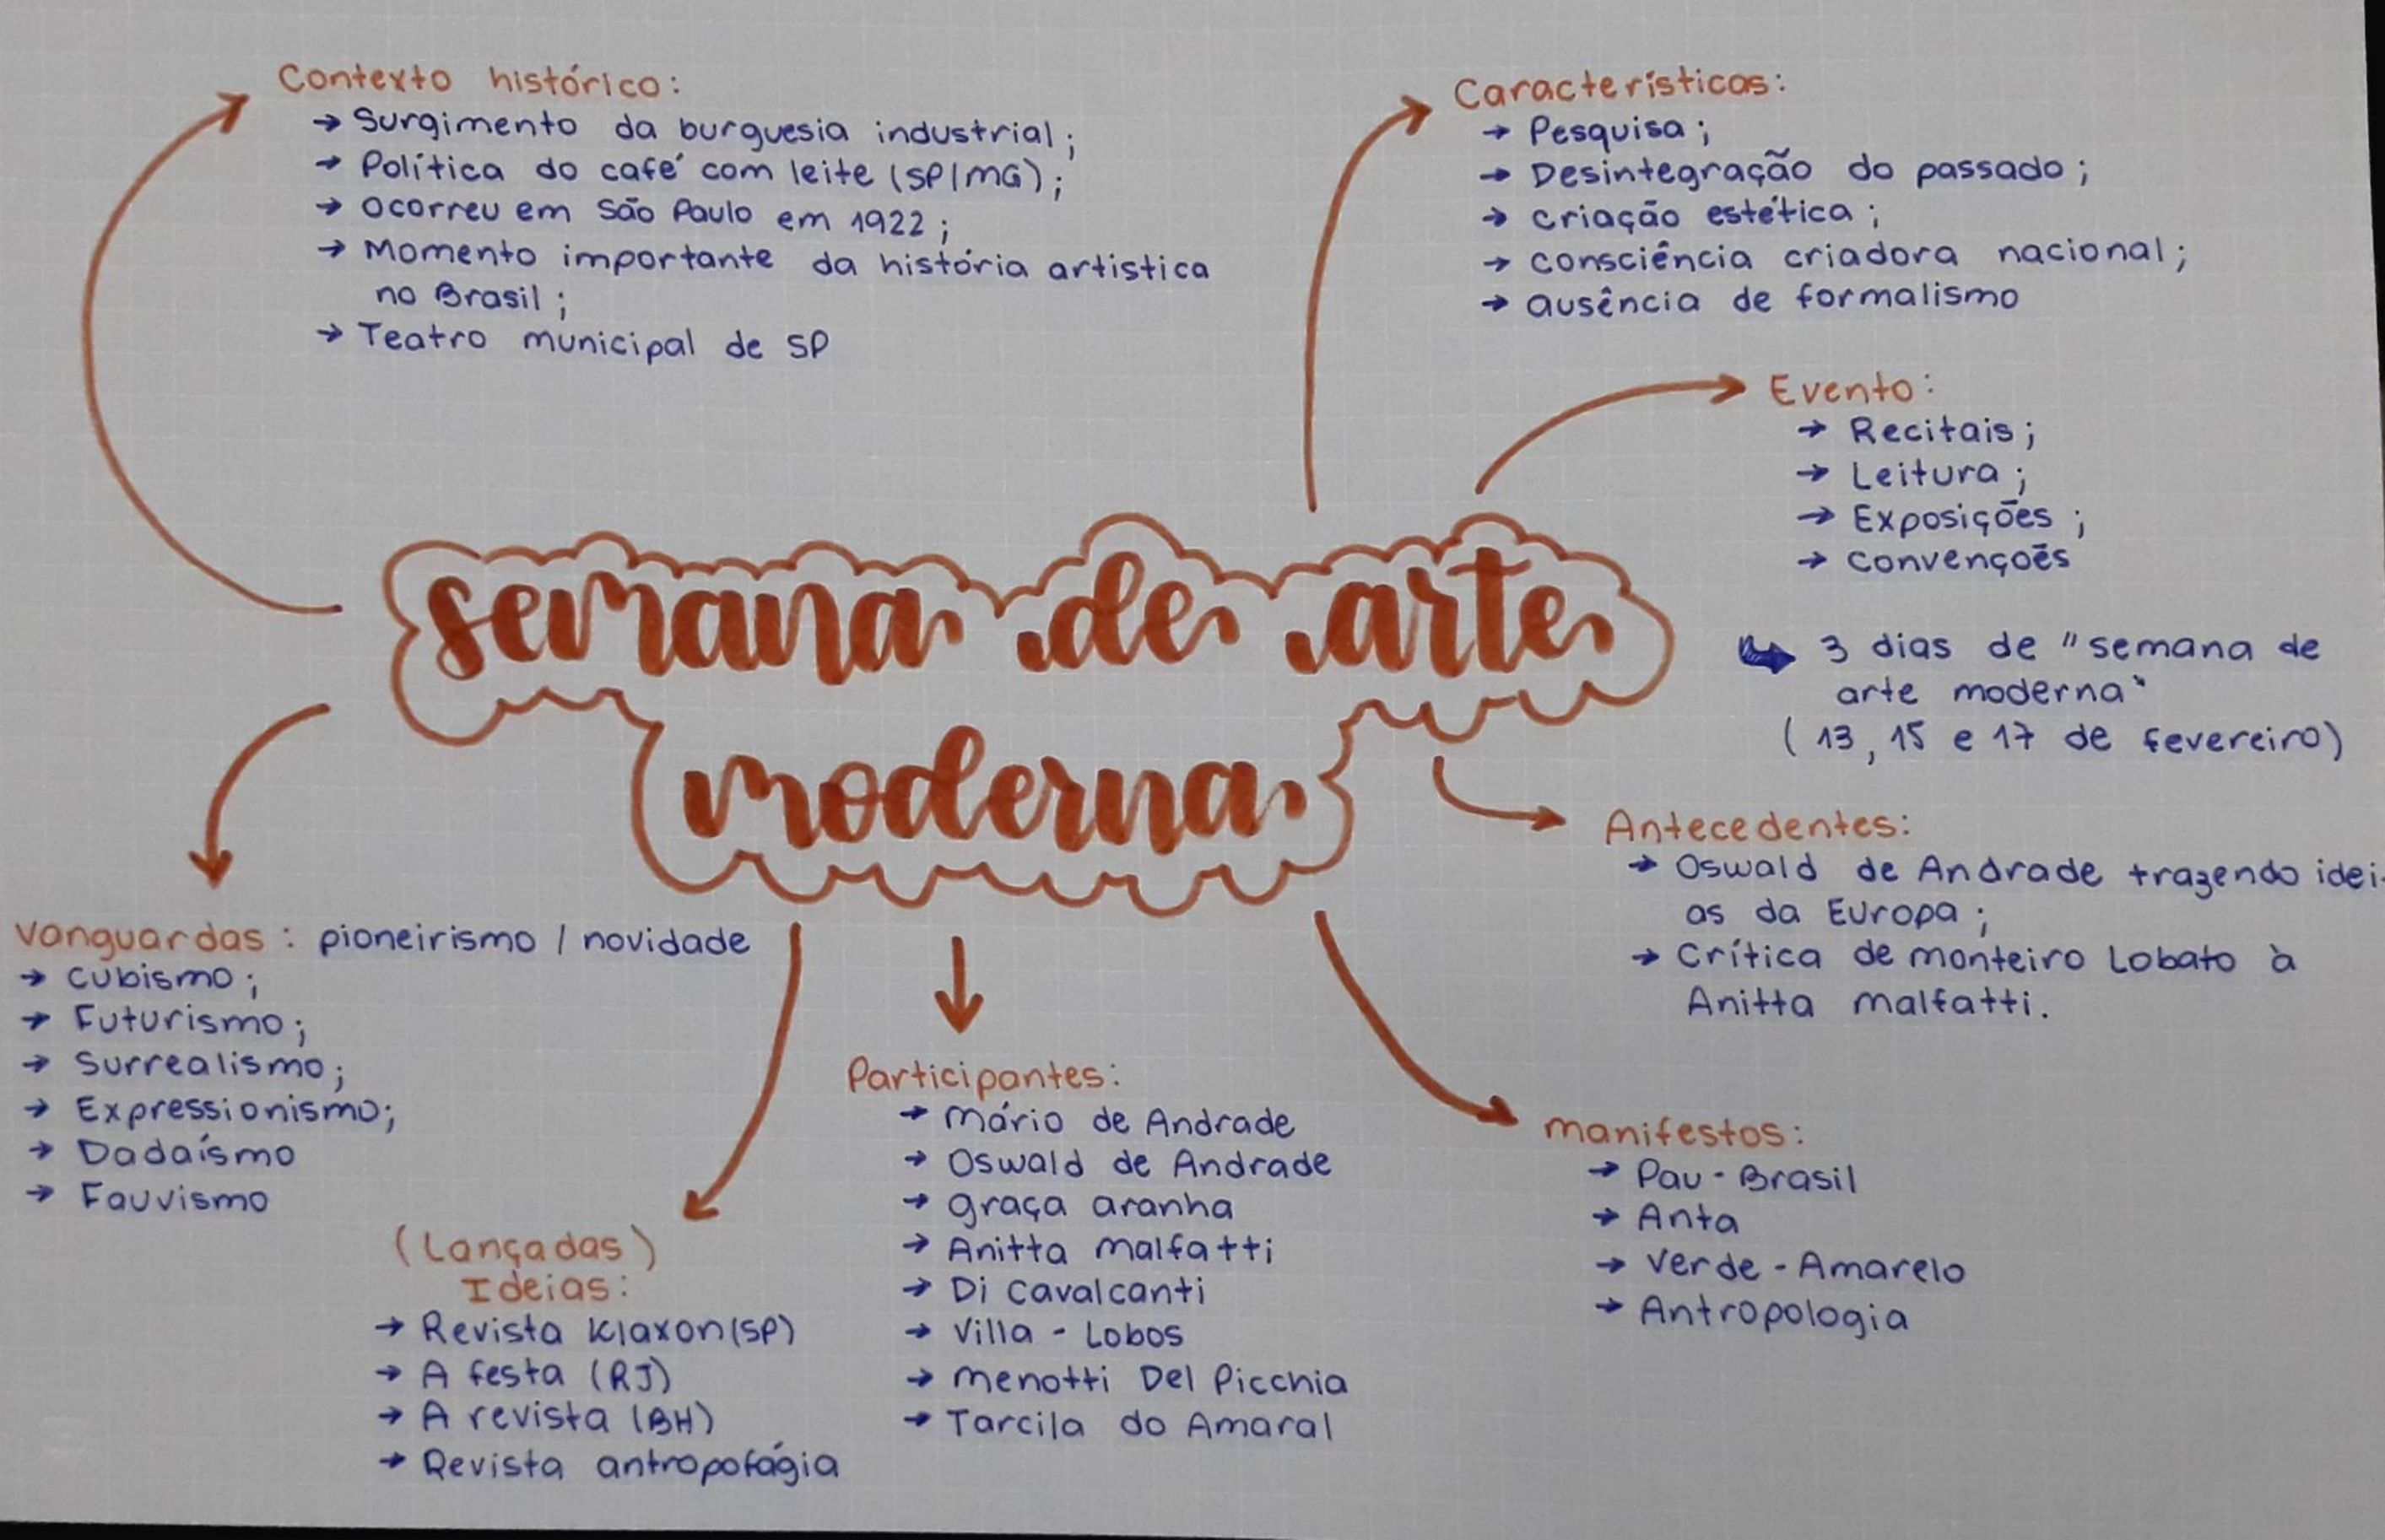 Contexto histórico:
→ Surgimento da burguesia industrial;
→ Política do café com leite (SP/MG);
→ Ocorreu em São Paulo em 1922;
→ Momento importante da história artistica
no Brasil;
→ Teatro municipal de SP
Características:
→ Pesquisa;
→ Desintegração do passado;
→ criação estética;
→ consciência criadora nacional;
→ ausência de formalismo
Evento:
→ Recitais;
→ Leitura;
→ Exposições;
→ convençoês
3 dias de "semana de
arte moderna"
(13, 15 e 17 de fevereiro)
semana de arte
moderna
Antecedentes:
→ Oswald de Andrade trazendo idei-
as da Europa;
→ Crítica de monteiro Lobato à
Anitta malfatti.
Vanguardas: pioneirismo / novidade
→ cubismo;
→ Futurismo;
→ Surrealismo;
→ Expressionismo;
→ Dadaísmo
→ Fauvismo
(Lançadas)
Ideias:
→ Revista Klaxon (SP)
→ A festa (RJ)
→ A revista (BH)
→ Revista antropofágia
Participantes:
→ mário de Andrade
→ Oswald de Andrade
→ graça aranha
→ Anitta malfatti
→ Di cavalcanti
→ villa - Lobos
→ menotti Del Picchia
→ Tarcila do Amaral
manifestos:
→ Pau - Brasil
→ Anta
→ verde - Amarelo
→ Antropologia